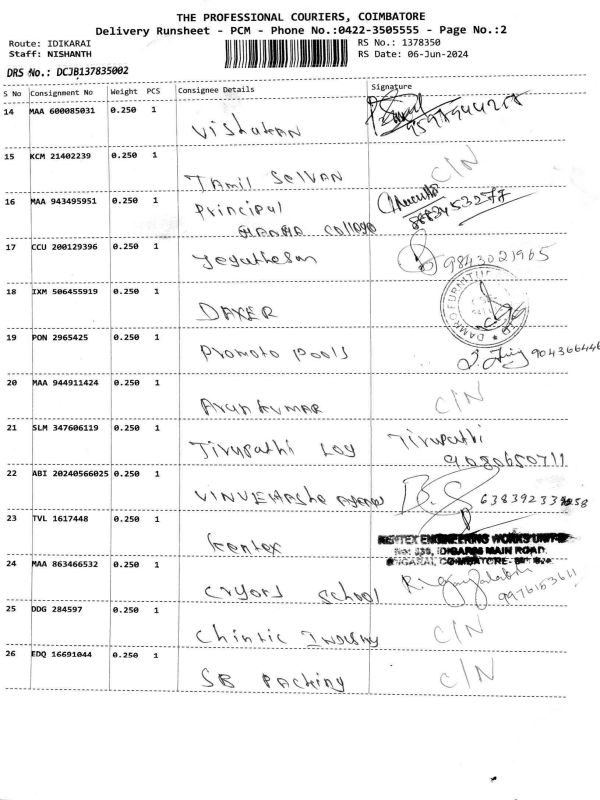 THE PROFESSIONAL COURIERS, COIMBATORE
Delivery Runsheet - PCM - Phone No.:0422-3505555 - Page No.:2
Route: IDIKARAI RS No.: 1378350
Staff: NISHANTH RS Date: 06-Jun-2024
DRS No.: DCJB137835002
S No Consignment No Weight PCS Consignee Details Signature
14 MAA 600085031 0.250 1
Vishakan
15 KCM 21402239 0.250 1 C/N
Tamil Selvan
16 MAA 943495951 0.250 1 Principal
College
17 CCU 200129396 0.250 1 9843021965
Jegathesan
18 IXM 506455919 0.250 1 DAMRO FURNITURE
19 PON 2965425 0.250 1
Promoto Pools
20 MAA 944911424 0.250 1 C/N
Arun kumar
21 SLM 347606119 0.250 1 Tirupathi
Tirupathi 9080650711
22 ABI 20240566025 0.250 1
23 TVL 1617448 0.250 1
Kentex KENTEX ENGINEERING WORKS
MAIN ROAD
24 MAA 863466532 0.250 1
School 9976153611
25 DDG 284597 0.250 1 C/N
26 EDQ 16691044 0.250 1 C/N
SB Packing